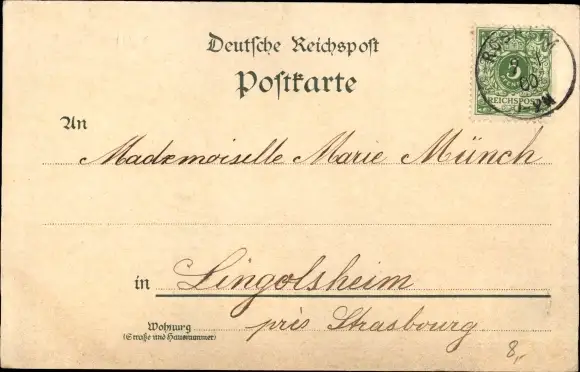 Deutsche Reichspost
Postkarte
5
REICHSPOST
00
An
Mademoiselle Marie Münch
in Lingolsheim
Wohnung
(Straße und Hausnummer)
près Strasbourg
8,-